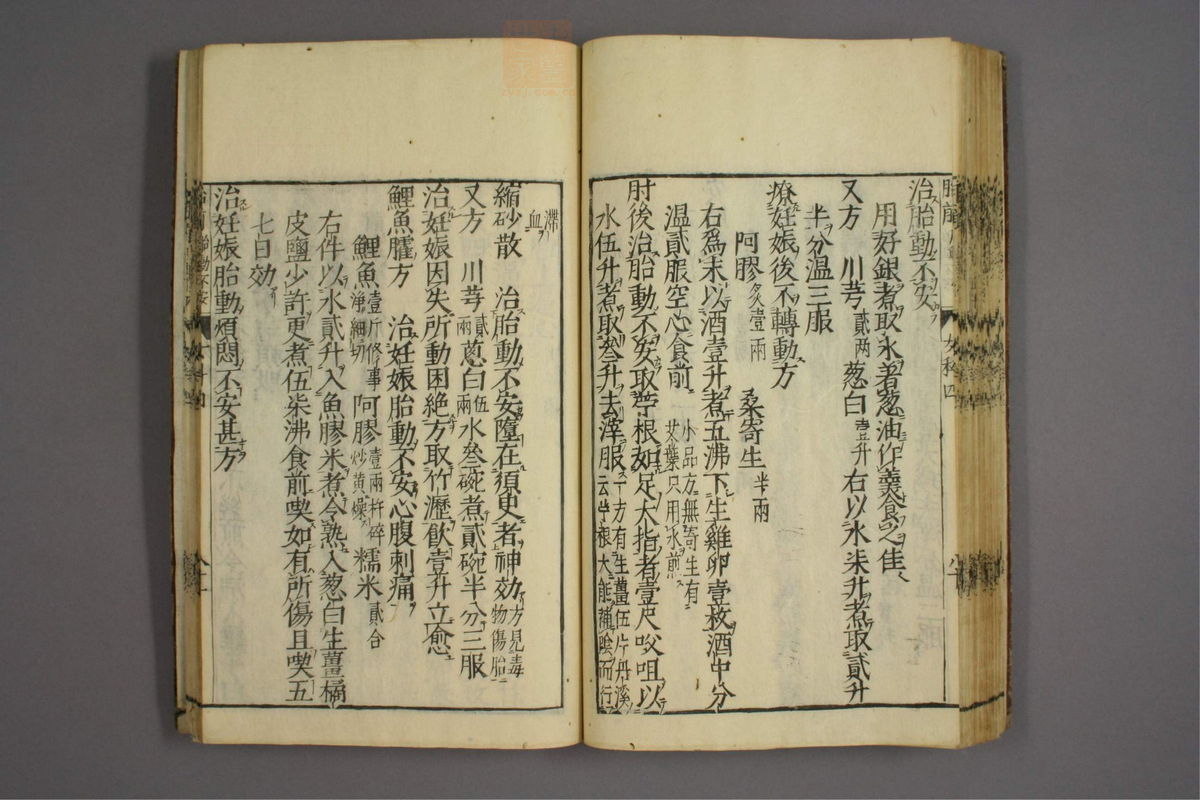 治胎動不安
用好銀煮取水著葱油作羹食之佳
又方　川芎貳两葱白壹升右以水柒升煮取貳升
半分温三服
療妊娠後不轉動方
阿膠炙壹兩　桑寄生半兩
右爲末以酒壹升煮五沸下生雞卵壹枚酒中分
温貳服空心食前小品方無寄生有艾葉只用水煎
肘後治胎動不安取苧根如足大指者壹尺㕮咀以
水伍升煮取叁升去滓服一方有生薑伍片丹溪云苧根大能補陰而行
滯血
縮砂散　治胎動不安墮在須臾者神効方見毒物傷胎
又方　川芎貳兩葱白伍兩水叁碗煮貳碗半分三服
治妊娠因失所動困絶方取竹瀝飲壹升立愈
鯉魚臛方　治妊娠胎動不安心腹刺痛
鯉魚壹斤修事淨細切阿膠壹兩杵碎炒黄燥糯米貳合
右件以水貳升入魚膠米煮令熟入葱白生薑橘
皮鹽少許更煮伍柒沸食前喫如有所傷且喫五
七日効
治妊娠胎動煩悶不安甚方